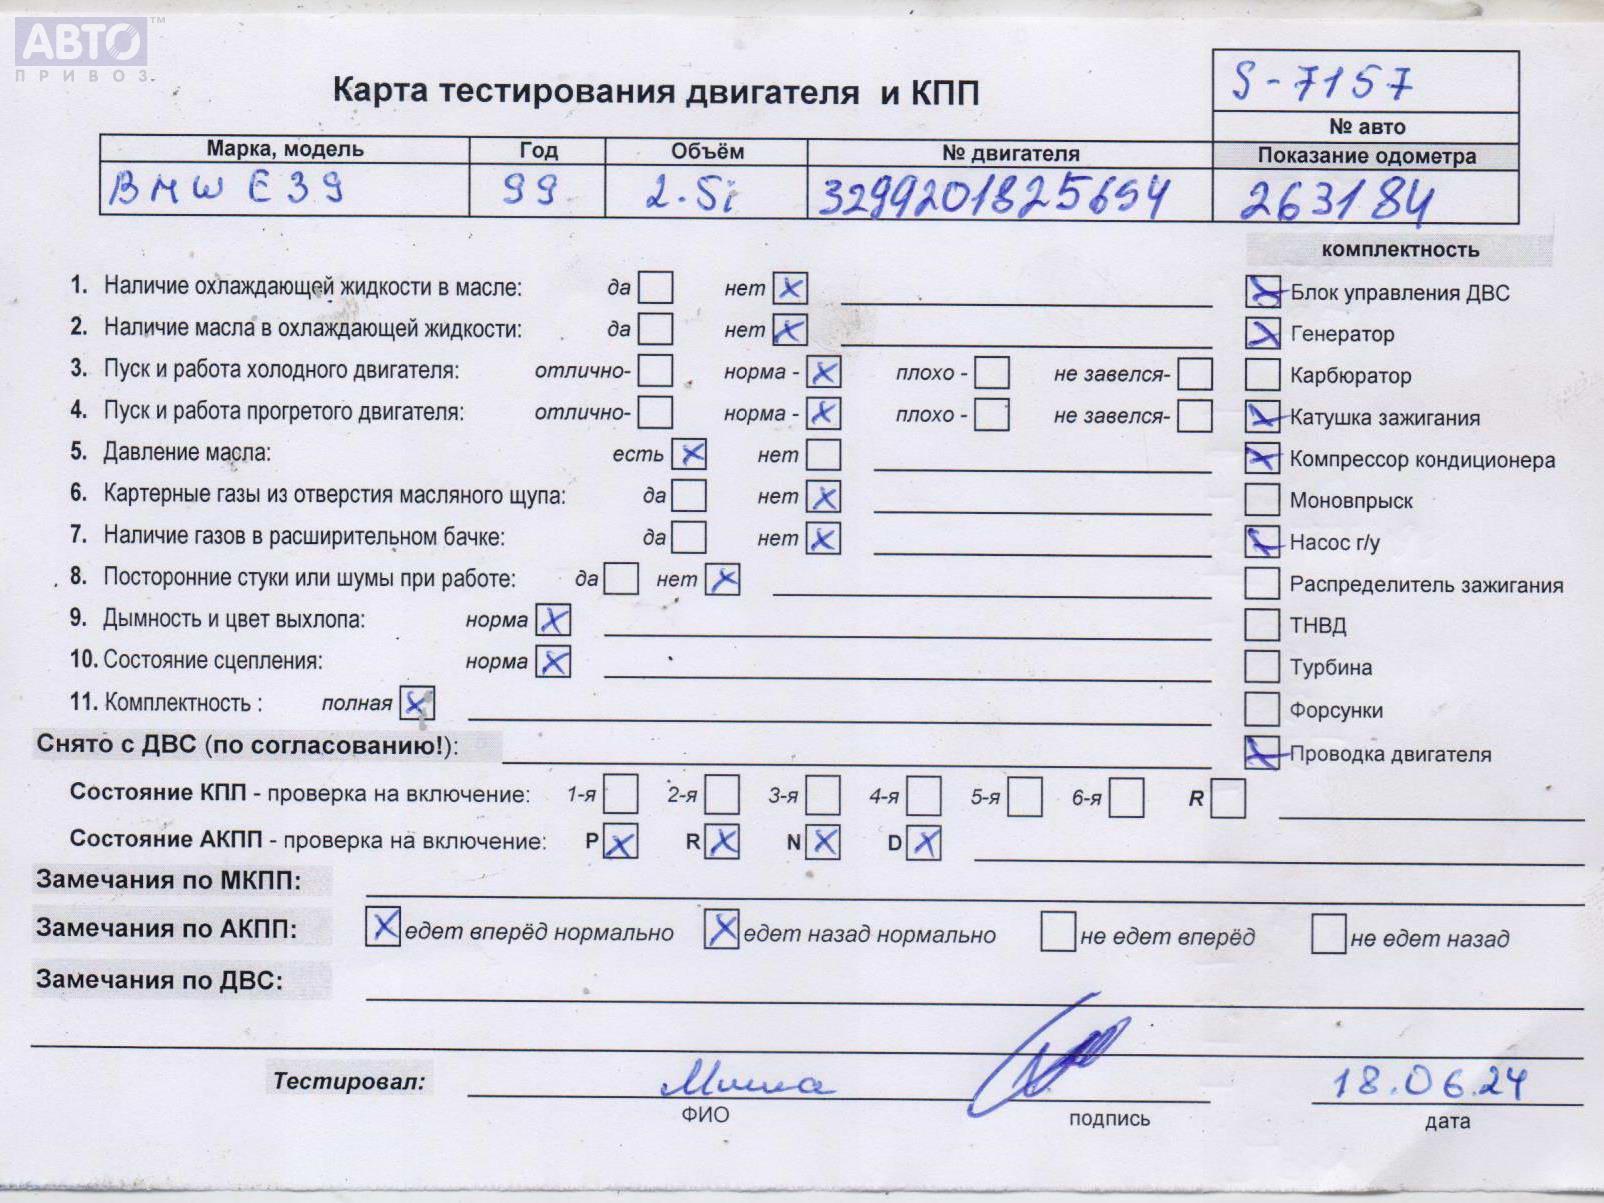 АВТО™
ПРИВОЗ
Карта тестирования двигателя и КПП
S-7157
№ авто
Марка, модель Год Объём № двигателя Показание одометра
BMW E39 99 2.5i 3299201825654 263184
комплектность
1. Наличие охлаждающей жидкости в масле: да нет X
X Блок управления ДВС
2. Наличие масла в охлаждающей жидкости: да нет X
X Генератор
3. Пуск и работа холодного двигателя: отлично- норма - X плохо - не завелся-
Карбюратор
4. Пуск и работа прогретого двигателя: отлично- норма - X плохо - не завелся-
X Катушка зажигания
5. Давление масла: есть X нет
X Компрессор кондиционера
6. Картерные газы из отверстия масляного щупа: да нет X
Моновпрыск
7. Наличие газов в расширительном бачке: да нет X
X Насос г/у
8. Посторонние стуки или шумы при работе: да нет X
Распределитель зажигания
9. Дымность и цвет выхлопа: норма X
ТНВД
10. Состояние сцепления: норма X
Турбина
11. Комплектность : полная X
Форсунки
Снято с ДВС (по согласованию!):
X Проводка двигателя
Состояние КПП - проверка на включение: 1-я 2-я 3-я 4-я 5-я 6-я R
Состояние АКПП - проверка на включение: P X R X N X D X
Замечания по МКПП:
Замечания по АКПП: X едет вперёд нормально X едет назад нормально не едет вперёд не едет назад
Замечания по ДВС:
Тестировал: Миша 18.06.24
ФИО подпись дата